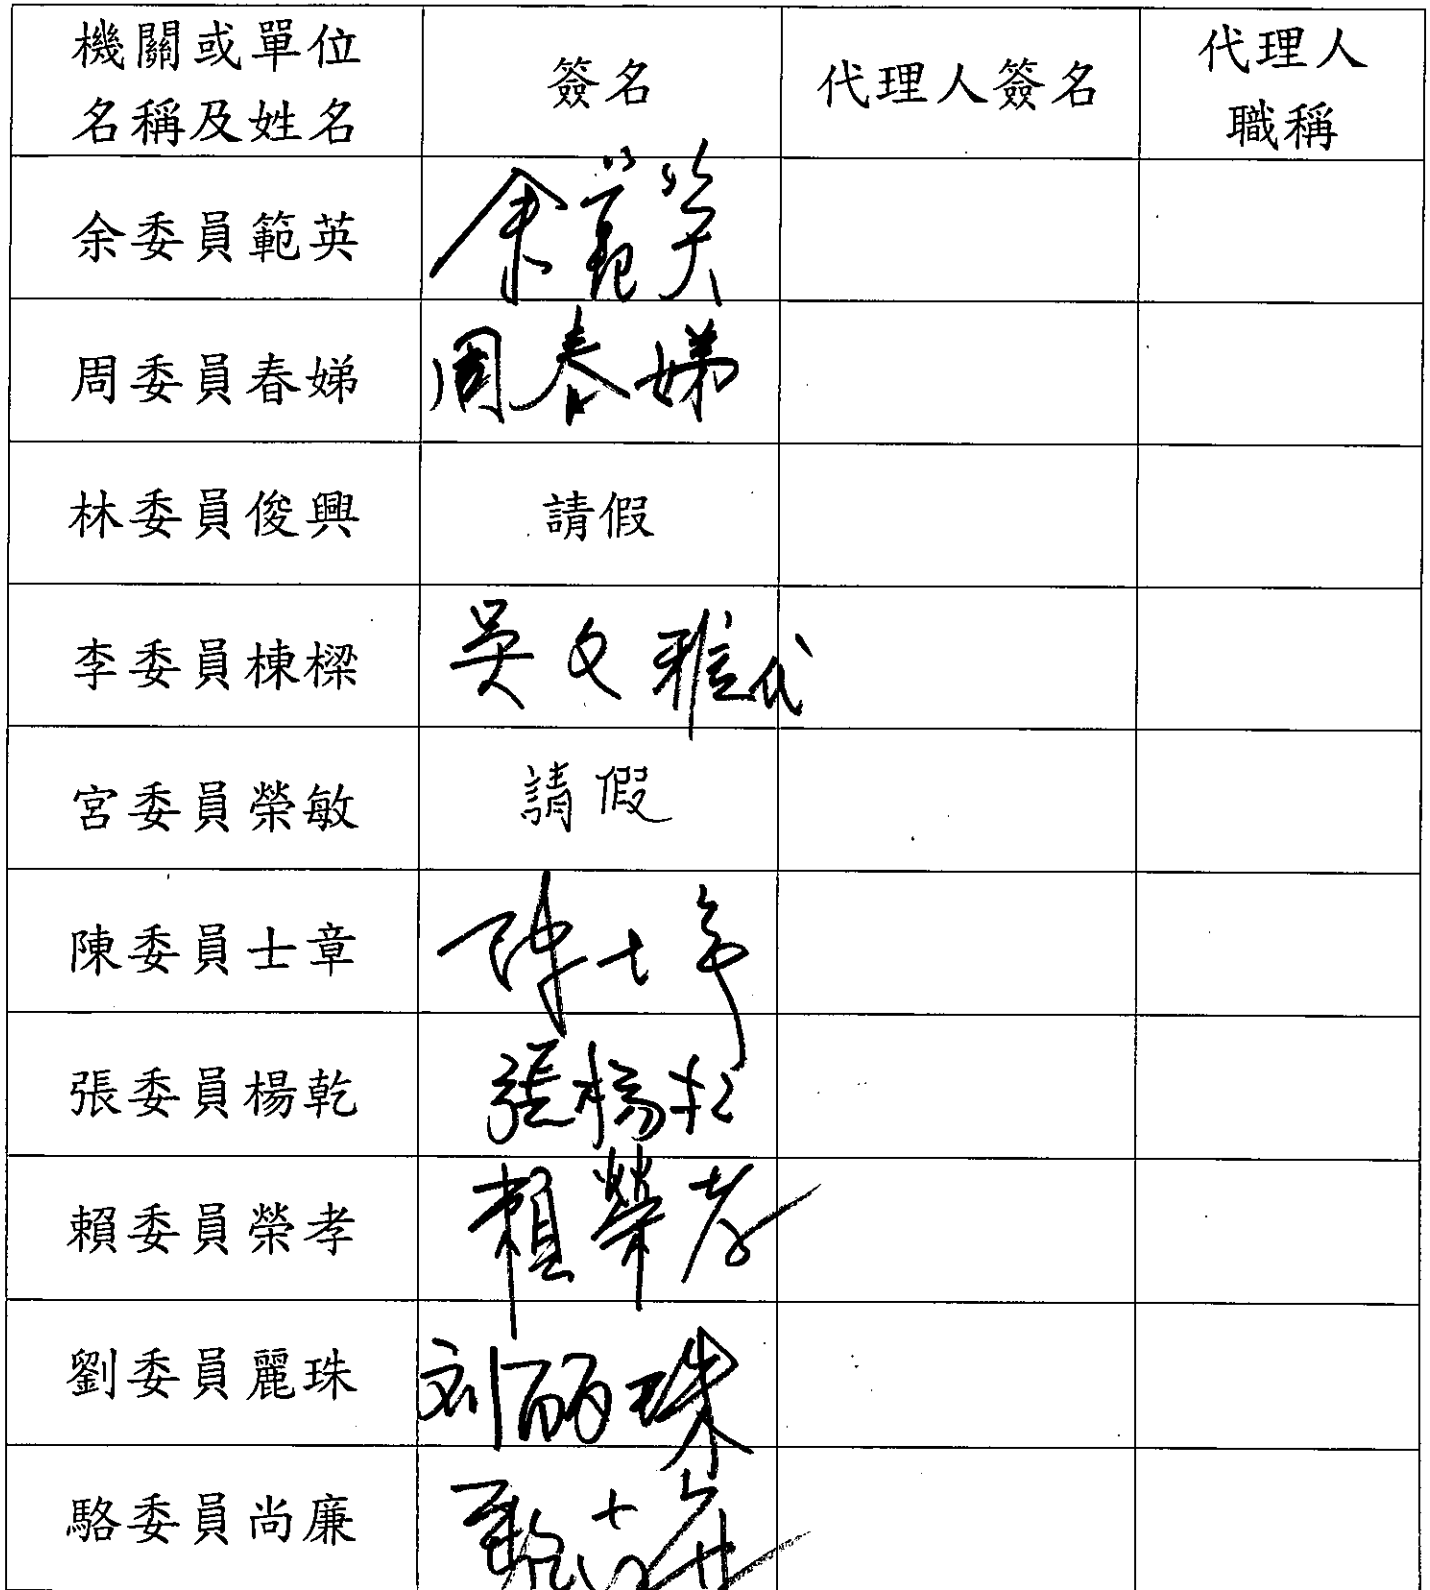 機關或單位
名稱及姓名
簽名
代理人簽名
代理人
職稱
余委員範英
余範英
周委員春娣
周春娣
林委員俊興
請假
李委員棟樑
吳文雅代
宮委員榮敏
請假
陳委員士章
陳士章
張委員楊乾
張楊乾
賴委員榮孝
賴榮孝
劉委員麗珠
刘丽珠
駱委員尚廉
駱尚廉